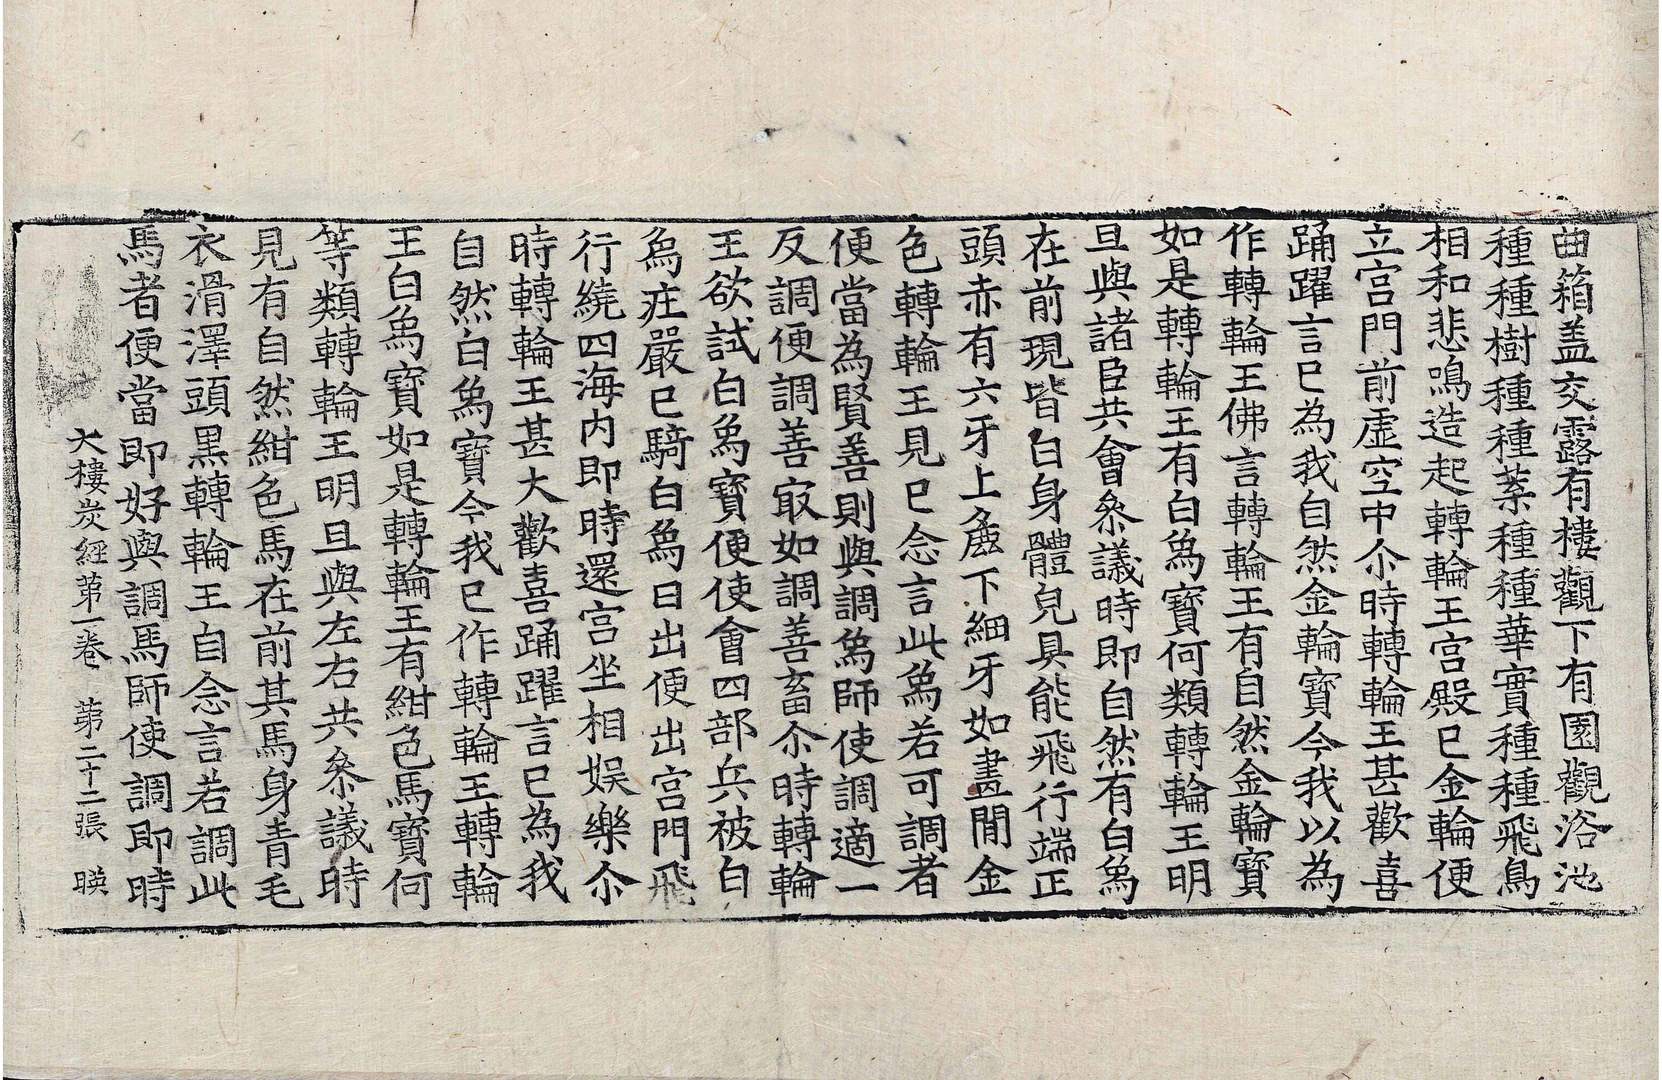 曲箱盖交露有樓觀下有園觀浴池
種種樹種種葉種種華實種種飛鳥
相和悲鳴造起轉輪王宮殿已金輪便
立宮門前虛空中尒時轉輪王甚歡喜
踊躍言已為我自然金輪寶今我以為
作轉輪王佛言轉輪王有自然金輪寶
如是轉輪王有白爲寶何類轉輪王明
旦與諸臣共會叅議時即自然有白爲
在前現皆白身體皃具能飛行端正
頭赤有六牙上麁下細牙如畫閒金
色轉輪王見已念言此爲若可調者
便當為賢善則與調爲師使調適一
反調便調善㝡如調善畜尒時轉輪
王欲試白爲寶便使會四部兵被白
爲莊嚴已騎白爲日出便出宮門飛
行繞四海内即時還宮坐相娛樂尒
時轉輪王甚大歡喜踊躍言已為我
自然白爲寶今我已作轉輪王轉輪
王白爲寶如是轉輪王有紺色馬寶何
等類轉輪王明旦與左右共叅議時
見有自然紺色馬在前其馬身青毛
衣滑澤頭黑轉輪王自念言若調此
馬者便當即好與調馬師使調即時
大樓炭經苐一卷　苐二十二張　暎